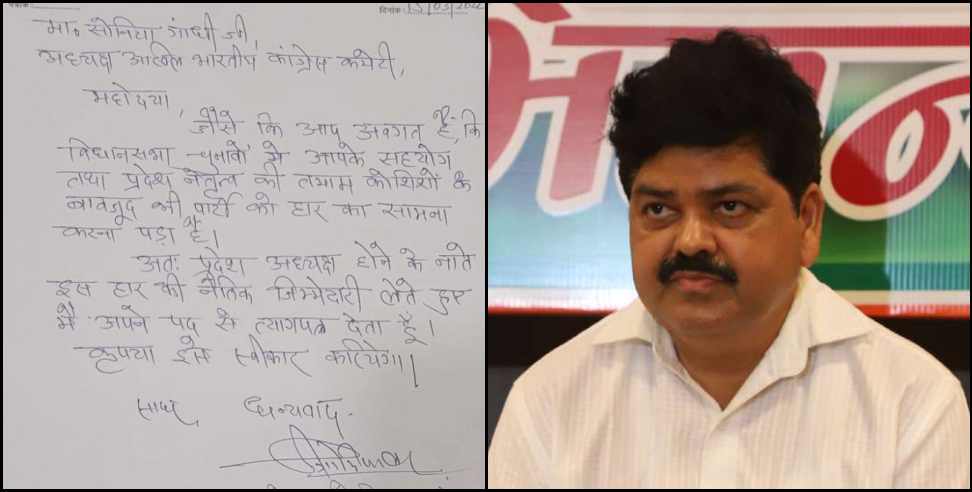 दिनांक: 15/03/2022
मा० सोनिया गांधी जी,
अध्यक्ष अखिल भारतीय कांग्रेस कमेटी,
महोदया,
जैसे कि आप अवगत हैं, कि
विधानसभा चुनावों में आपके सहयोग
तथा प्रदेश नेतृत्व की तमाम कोशिशों के
बावजूद भी पार्टी को हार का सामना
करना पड़ा है।
अतः प्रदेश अध्यक्ष होने के नाते
इस हार की नैतिक जिम्मेदारी लेते हुए
मैं अपने पद से त्यागपत्र देता हूँ।
कृपया इसे स्वीकार करियेगा।
सादर धन्यवाद